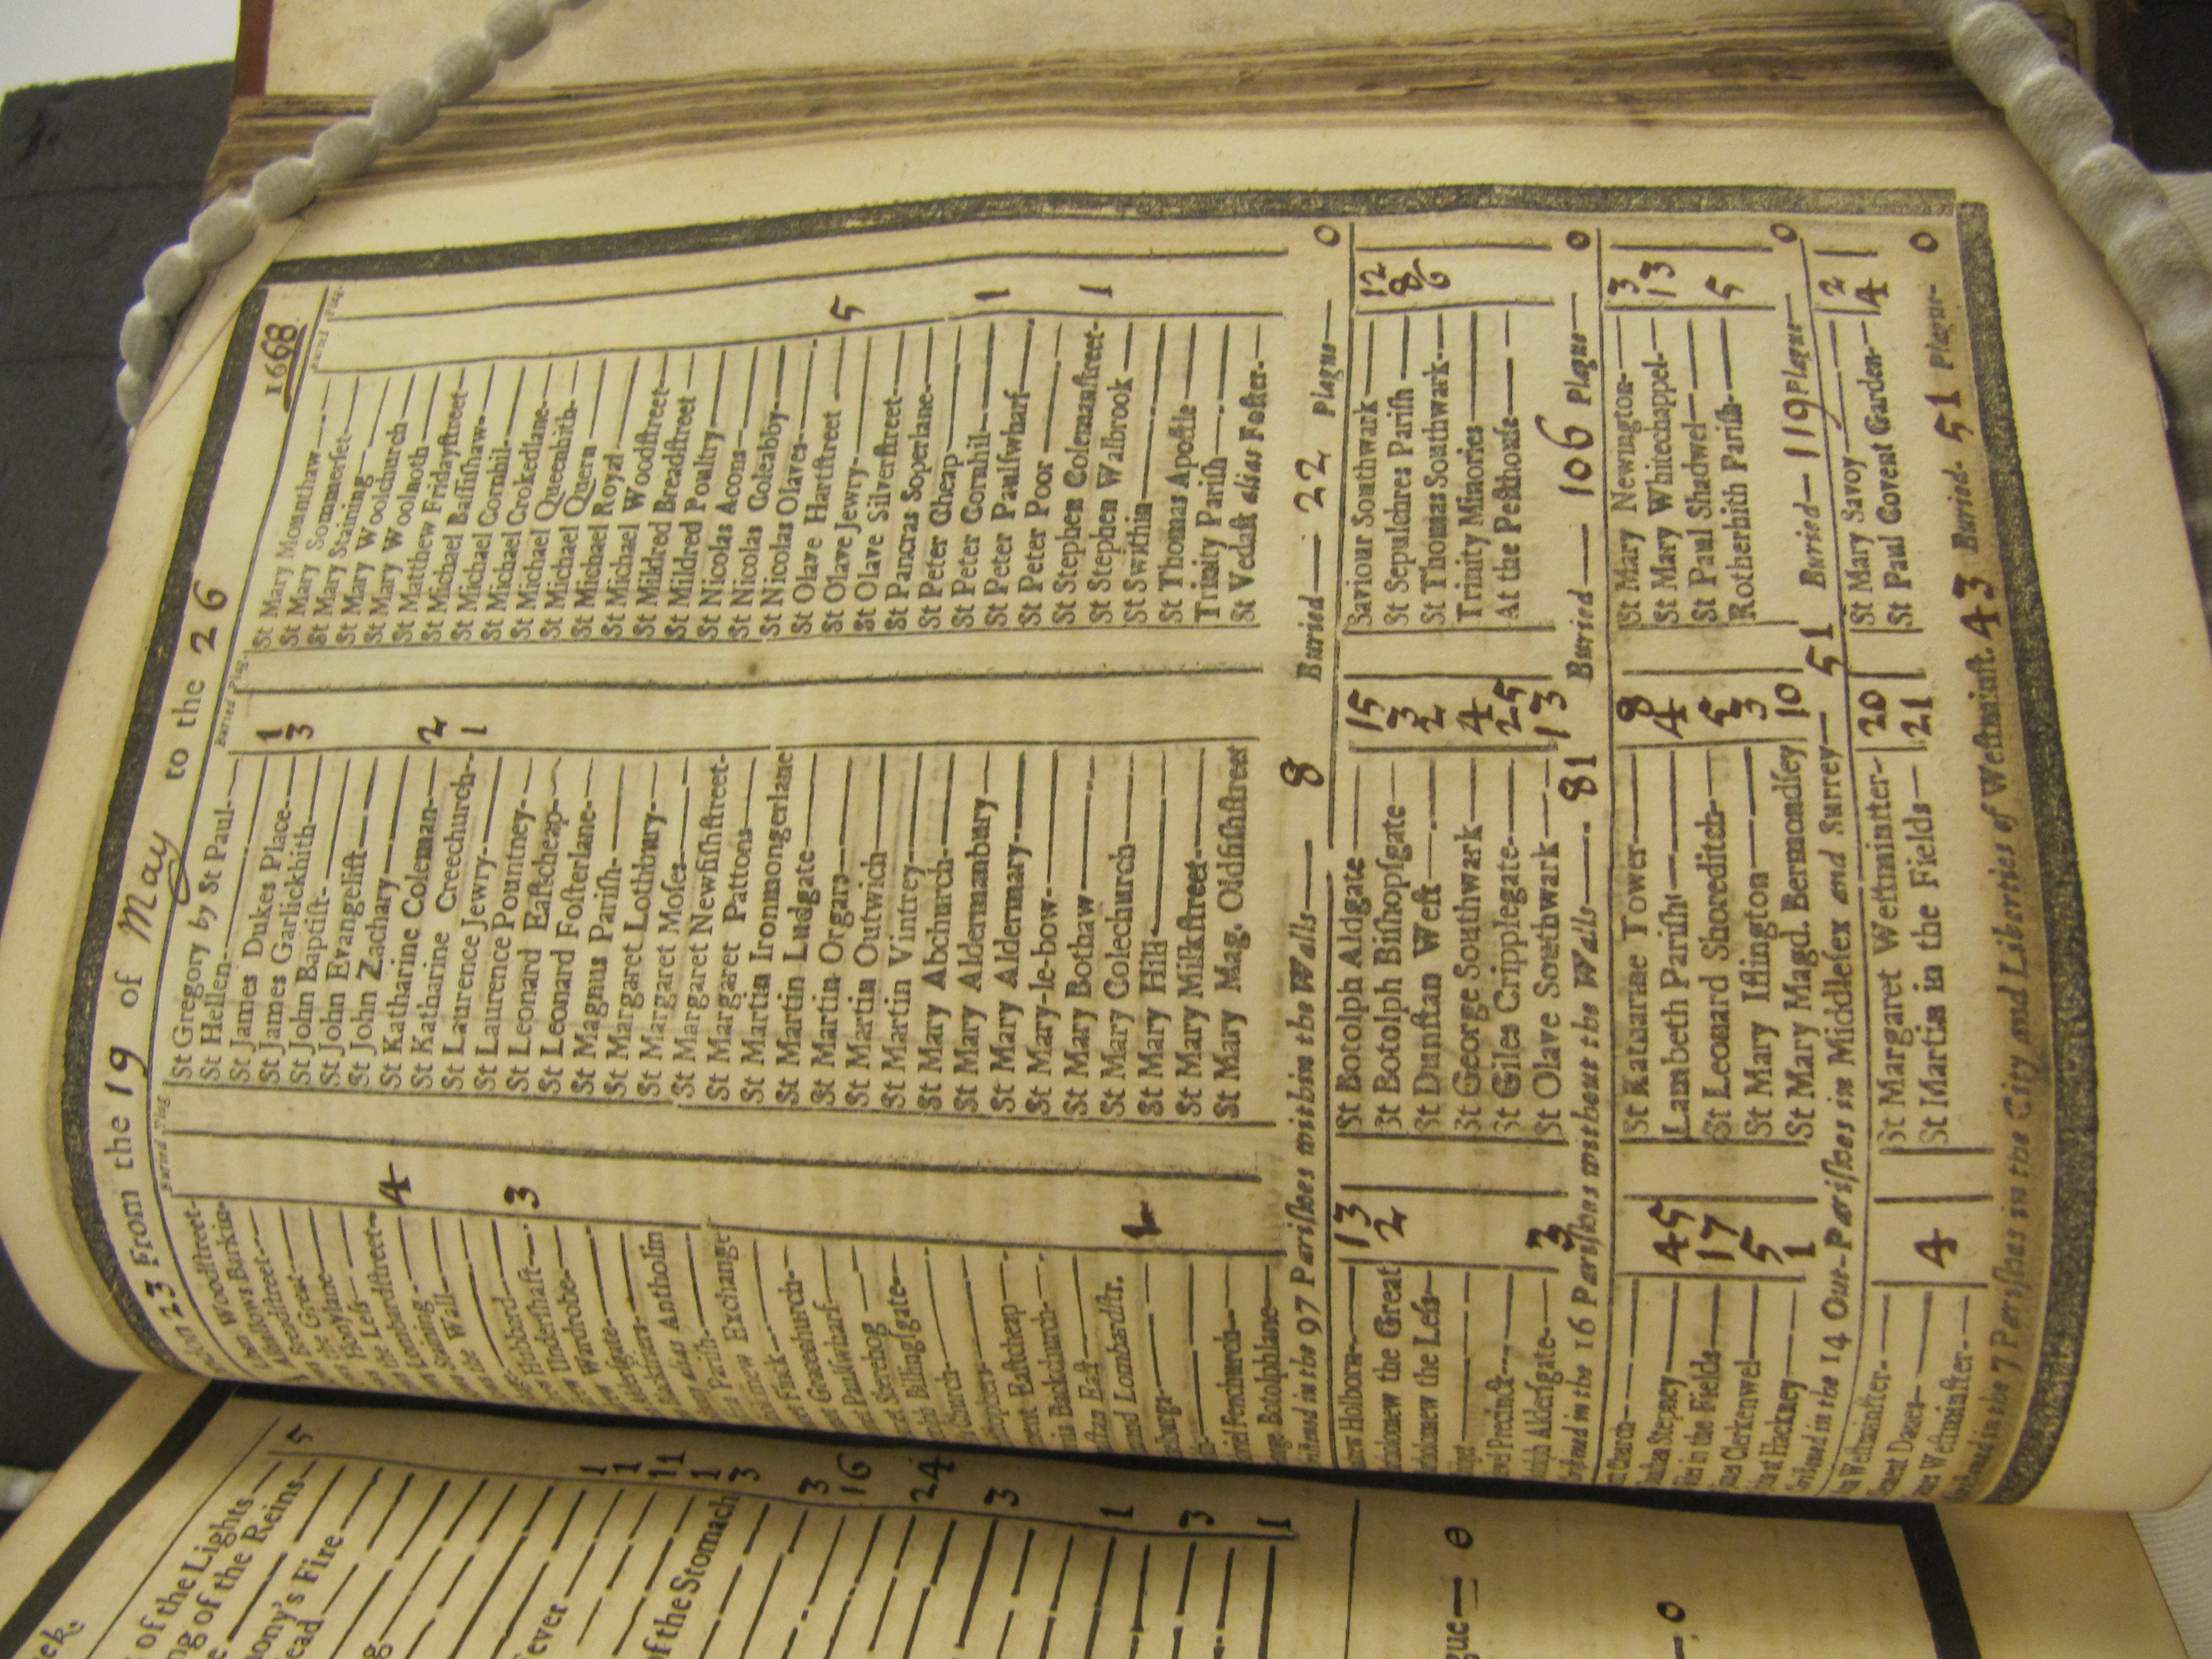 23 From the 19 of May to the 26 1668
Buried Plag
Buried Plag.
Buried Plag.
Woodstreet-
Barking-
Breadstreet
Great
Honylane
Less
Lombardstreet- 4
Staining
Wall
Hubbard
Undershaft 3
Wardrobe
Aldersgate
Blackfriers
alias Antholin
Parish
Exchange
Finck
Gracechurch-
Paulswharf
Billingsgate
Church
Eastcheap
Backchurch-
East
Lombardstr. 1
Fenchurch
Botolphlane
St Gregory by St Paul
St Hellen
St James Dukes Place 1
St James Garlickhith 3
St John Baptist
St John Evangelist
St John Zachary
St Katharine Coleman 2
St Katharine Creechurch 1
St Laurence Jewry
St Laurence Pountney
St Leonard Eastcheap
St Leonard Fosterlane
St Magnus Parish
St Margaret Lothbury
St Margaret Moses
St Margaret Newfishstreet
St Margaret Pattons
St Martin Ironmongerlane
St Martin Ludgate
St Martin Orgars
St Martin Outwich
St Martin Vintrey
St Mary Abchurch
St Mary Aldermanbury
St Mary Aldermary
St Mary-le-bow
St Mary Bothaw
St Mary Colechurch
St Mary Hill
St Mary Milkstreet
St Mary Mag. Oldfishstreet
St Mary Mounthaw
St Mary Sommerset
St Mary Staining
St Mary Woolchurch
St Mary Woolnoth
St Matthew Fridaystreet
St Michael Bassishaw
St Michael Cornhil
St Michael Crokedlane
St Michael Queenhith
St Michael Quern
St Michael Royal
St Michael Woodstreet
St Mildred Breadstreet
St Mildred Poultry
St Nicolas Acons
St Nicolas Coleabby
St Nicolas Olaves
St Olave Hartstreet 5
St Olave Jewry
St Olave Silverstreet
St Pancras Soperlane
St Peter Cheap
St Peter Cornhil 1
St Peter Paulswharf
St Peter Poor
St Stephen Colemanstreet 1
St Stephen Walbrook
St Swithin
St Thomas Apostle
Trinity Parish
St Vedast alias Foster
in the 97 Parishes within the Walls 8 Buried 22 Plague 0
Holborn 13
the Great 2
the Less
Precinct
Aldersgate 3
St Botolph Aldgate 15
St Botolph Bishopsgate 3
St Dunstan West 2
St George Southwark 4
St Giles Cripplegate 25
St Olave Southwark 13
Saviour Southwark 12
St Sepulchres Parish 8
St Thomas Southwark 6
Trinity Minories
At the Pesthouse
in the 16 Parishes without the Walls 81 Buried 106 Plague 0
Church
Stepney 45
in the Fields 17
Clerkenwel 5
at Hackney 1
St Katharine Tower 8
Lambeth Parish 4
St Leonard Shoreditch 5
St Mary Islington 3
St Mary Magd. Bermondsey 10
St Mary Newington 3
St Mary Whitechappel 13
St Paul Shadwel 5
Rotherhith Parish
in the 14 Out-Parishes in Middlesex and Surrey 51 Buried 119 Plague 0
Westminster
Danes 4
Westminster
St Margaret Westminster 20
St Martin in the Fields 21
St Mary Savoy 2
St Paul Covent Garden 4
in the 7 Parishes in the City and Liberties of Westminst. 43 Buried 51 Plague 0
of the Lights
of the Reins 5
Fire
ead
ever
of the Stomach
1
1
11
1
3
3
16
24
3
1
3
1
0
0